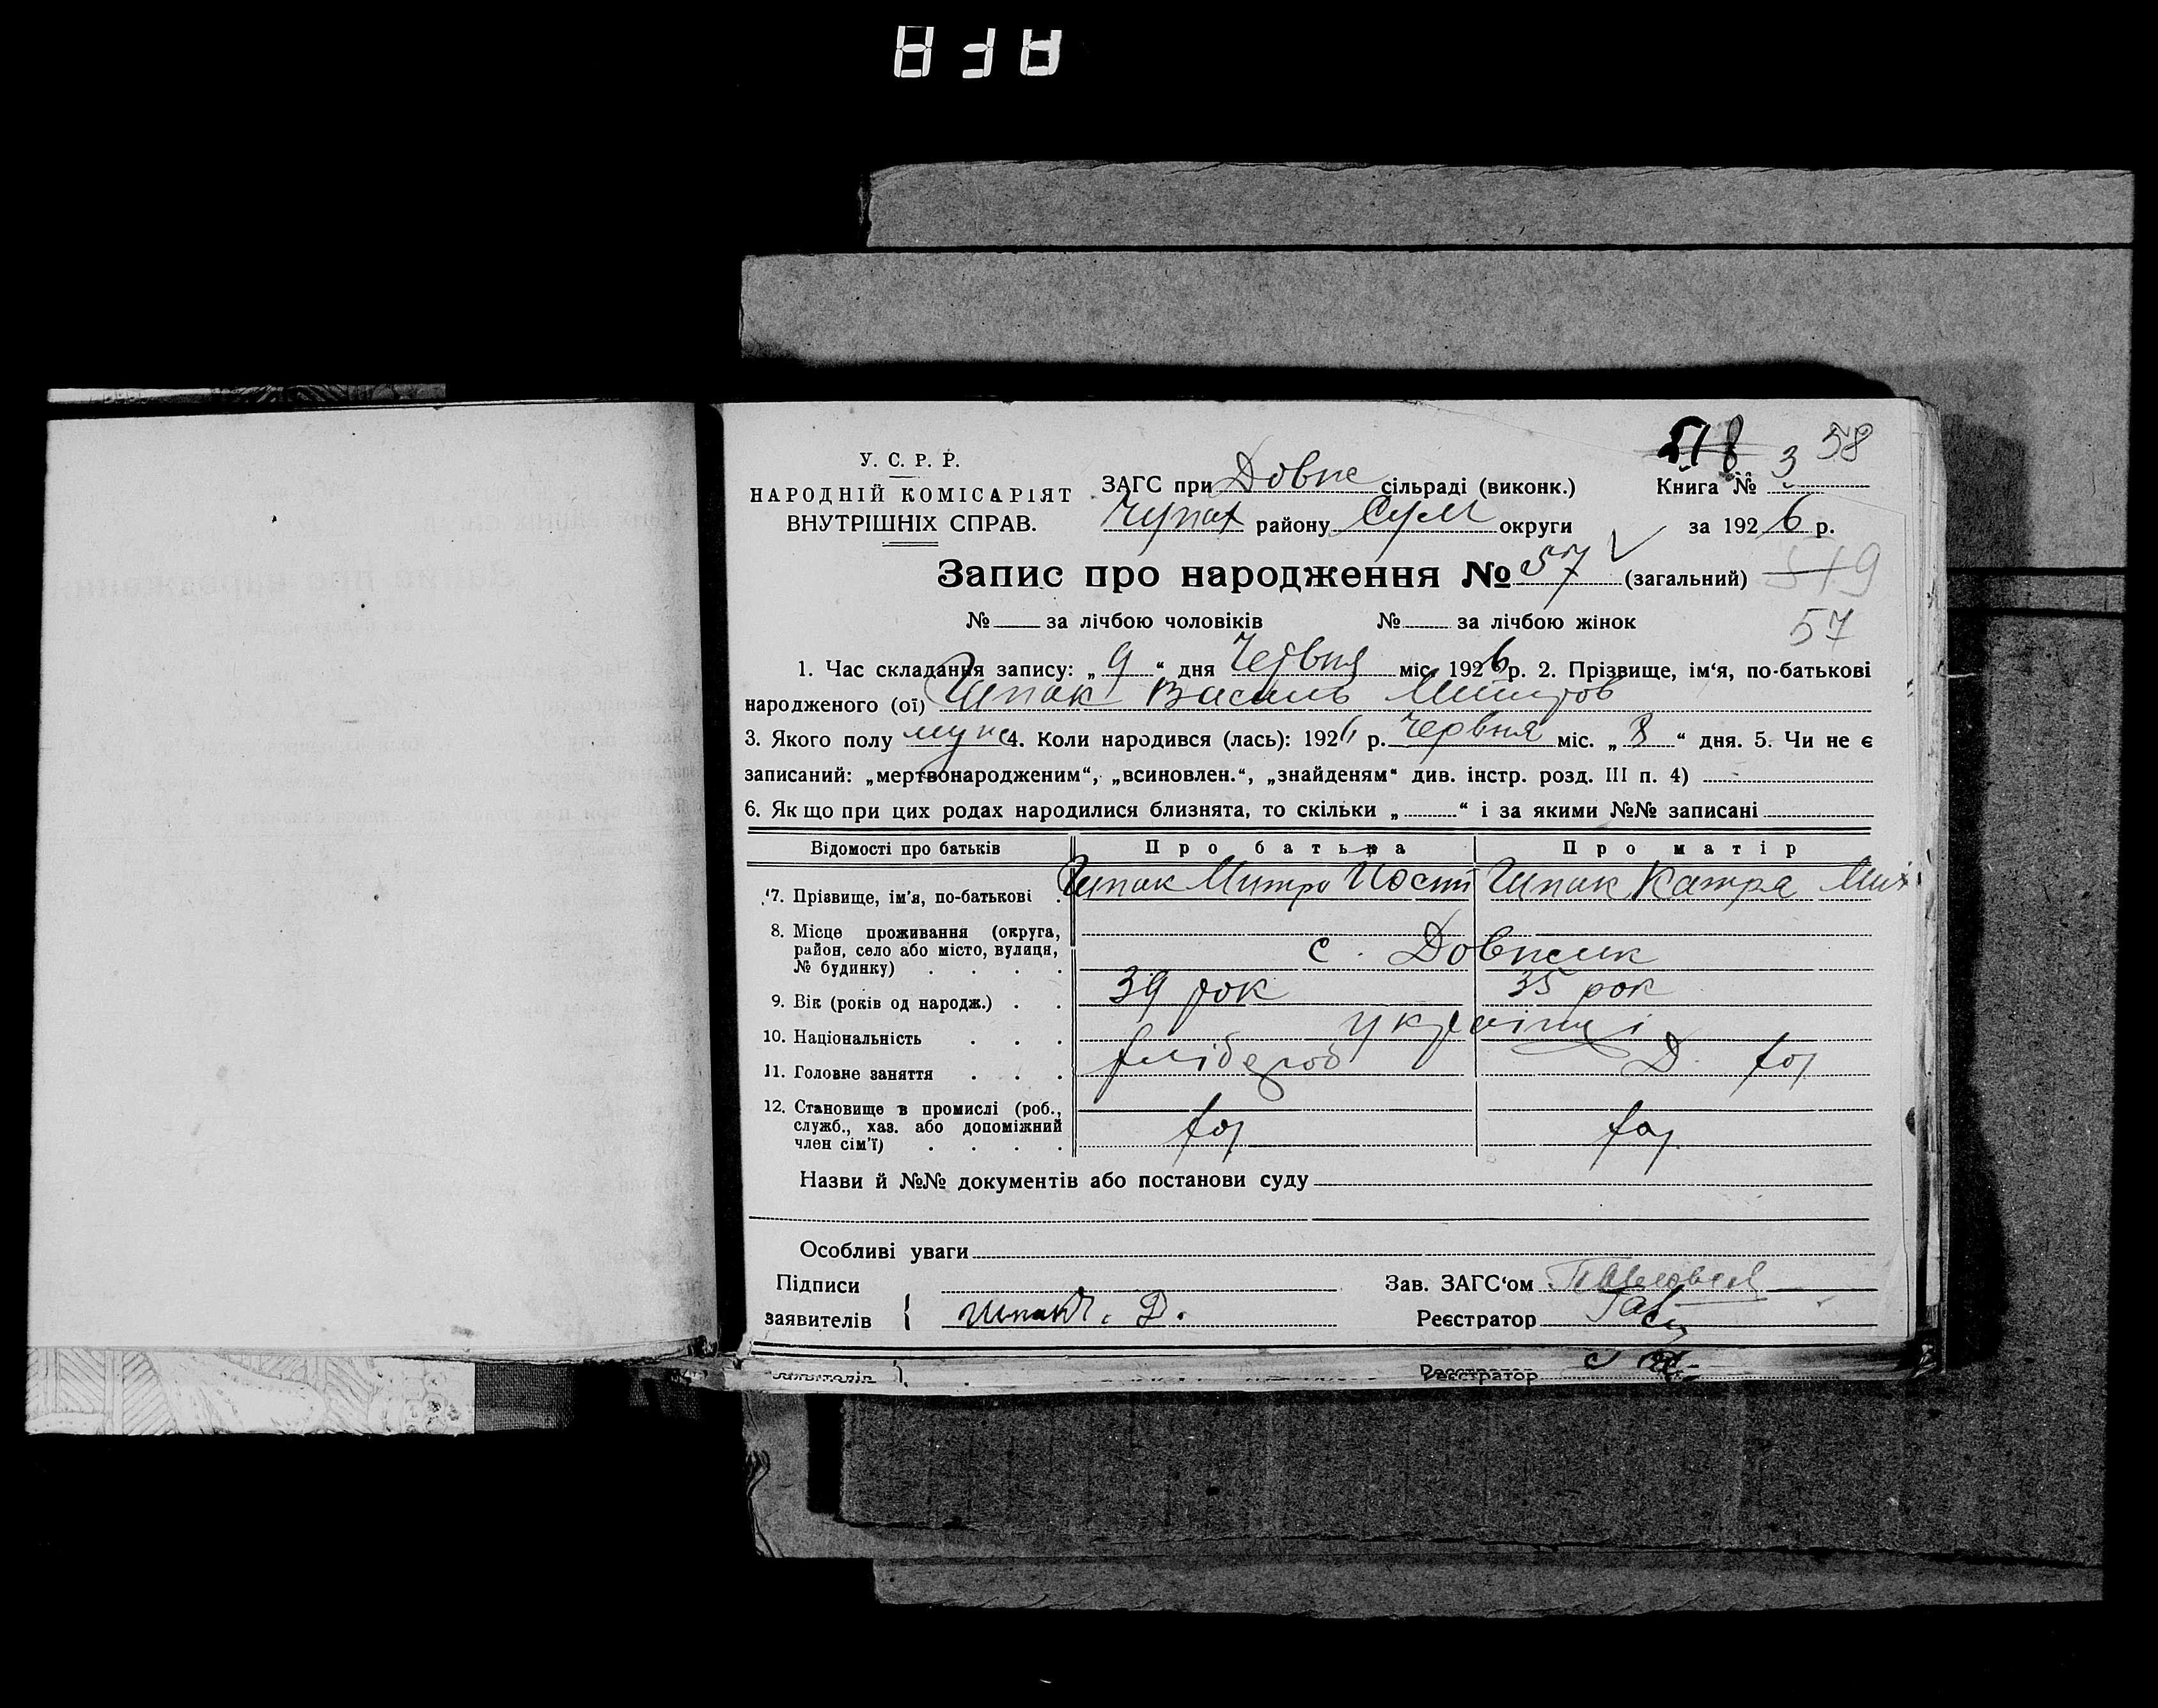 У. С. Р. Р.
НАРОДНІЙ КОМІСАРІЯТ
ВНУТРІШНІХ СПРАВ.
ЗАГС при Довж сільраді (виконк.)
Чупах району Сум округи
518 58
Книга № 3
за 1926 р.
Запис про народження № 57 (загальний) 519
№ за лічбою чоловіків № за лічбою жінок 57
1. Час складання запису: „ 9 “ дня Червня міс. 1926 р. 2. Прізвище, ім‘я, по-батькові
народженого (ої) Шпак Василь Митров
3. Якого полу муж 4. Коли народився (лась): 1926 р. Червня міс. „ 8 “ дня. 5. Чи не є
записаний: „мертвонародженим“, „всиновлен.“, „знайденям“ див. інстр. розд. III п. 4)
6. Якщо при цих родах народилися близнята, то скільки „ “ і за якими №№ записані
Відомості про батьків Про батька Про матір
7. Прізвище, ім'я, по-батькові Шпак Митро Йост Шпак Катря Мих
8. Місце проживання (округа,
район, село або місто, вулиця,
№ будинку) с. Довжик
9. Вік (років од народж.) 39 рок 35 рок
10. Національність українці
11. Головне заняття хлібороб Д. хоз
12. Становище в промислі (роб.,
служб., хаз. або допоміжний
член сім'ї) хоз хаз
Назви й №№ документів або постанови суду
Особливі уваги
Підписи
заявителів { Шпак Д.
Зав. ЗАГС‘ом
Реєстратор
Реєстратор